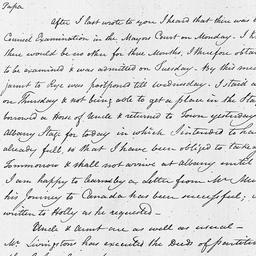 Papa
After I last wrote to you I heard that there was to
Counsel Examination in the Mayors Court on Monday. I k
there would be no other for three Months, I therefore obtai
to be examined & was admitted on Tuesday. By this me
jaunt to Rye was postponed till Wednesday. I staid u
on Thursday & not being able to get a place in the Sta
borrowed a Horse of Uncle & returned to Town yesterday
Albany Stage for today in which I intended to ha
already full, so that I have been obliged to take a
Tommorow & shall not arrive at Albany until
I am happy to learn by a letter from Mr. Mu
his Journey to Canada has been successful; u
written to Holly as he requested –
Uncle & Aunt are as well as usual –
Mr. Livingston has executed the Deeds of partition